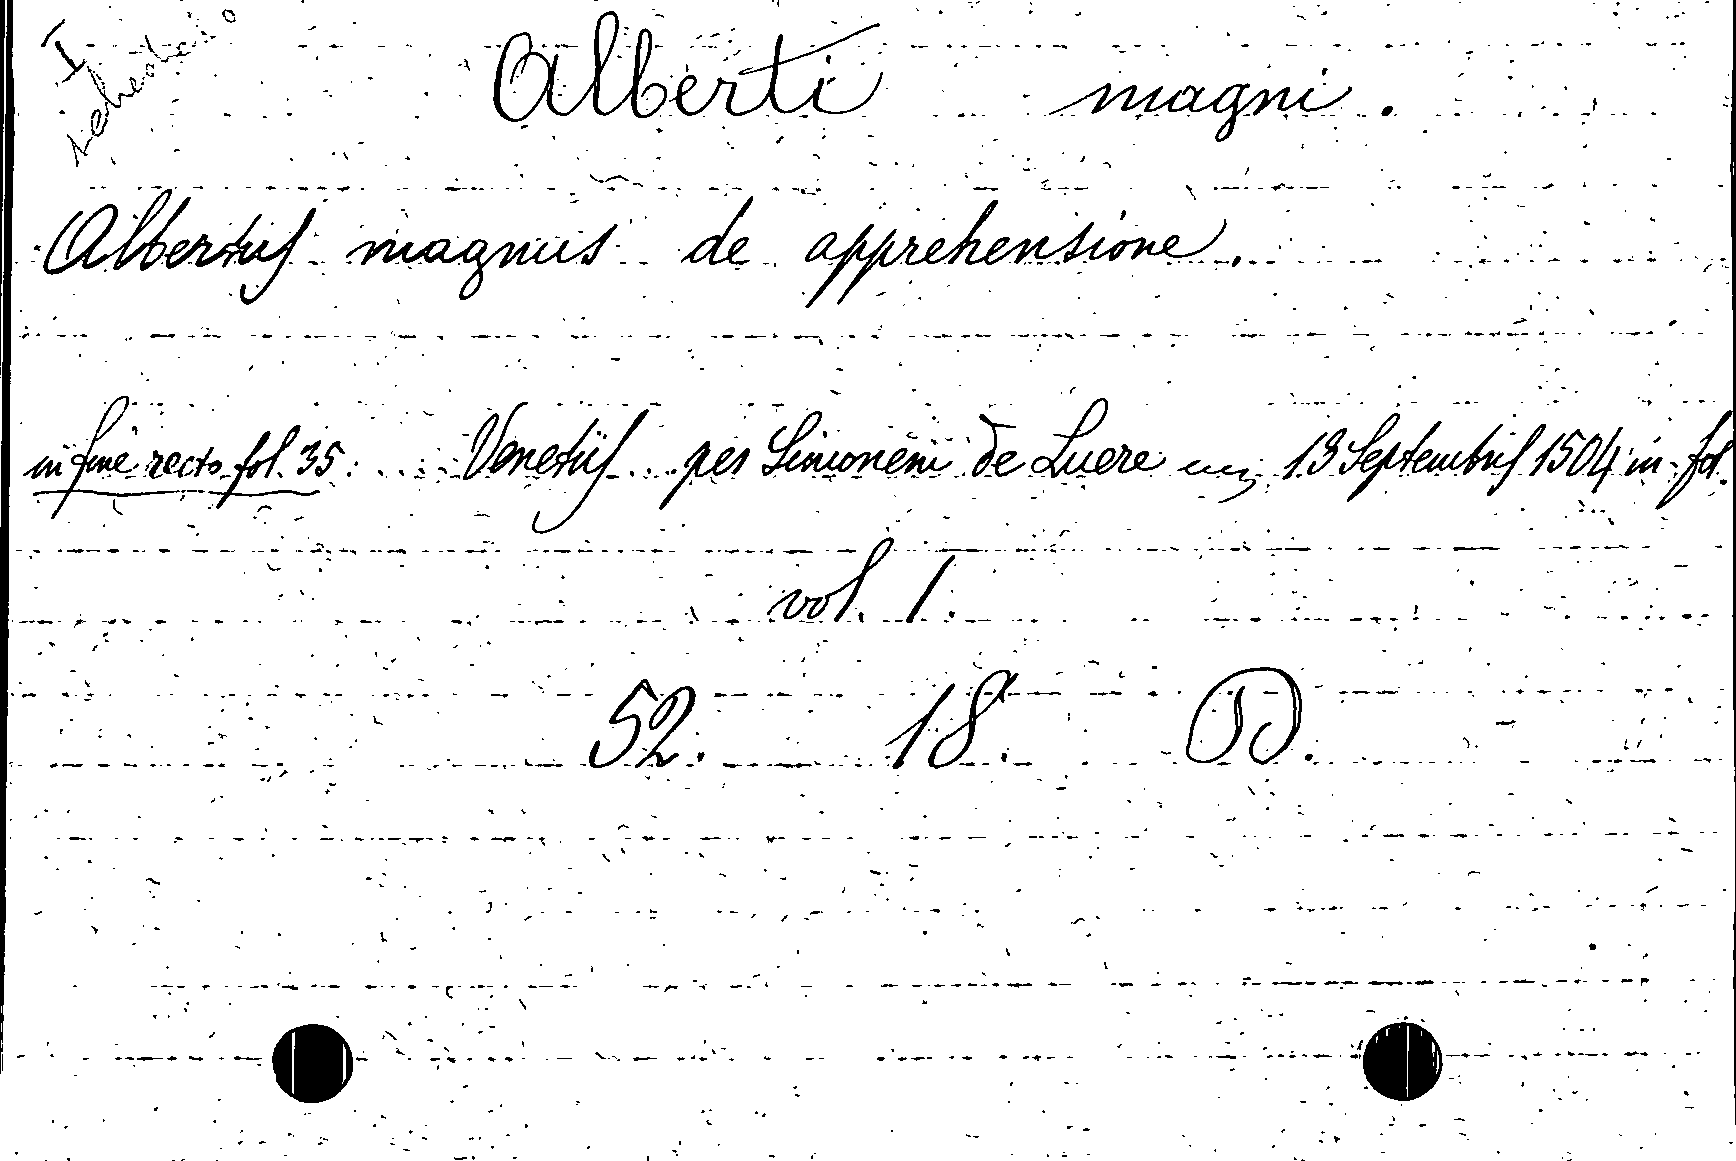 I
Alberti magni.
Albertus magnus de apprehensione.
in fine recto fol. 35: .... Venetijs .. per Simonem de Luere ... 13 Septembris 1504 in-fol.
vol. 1.
52. 18. D.